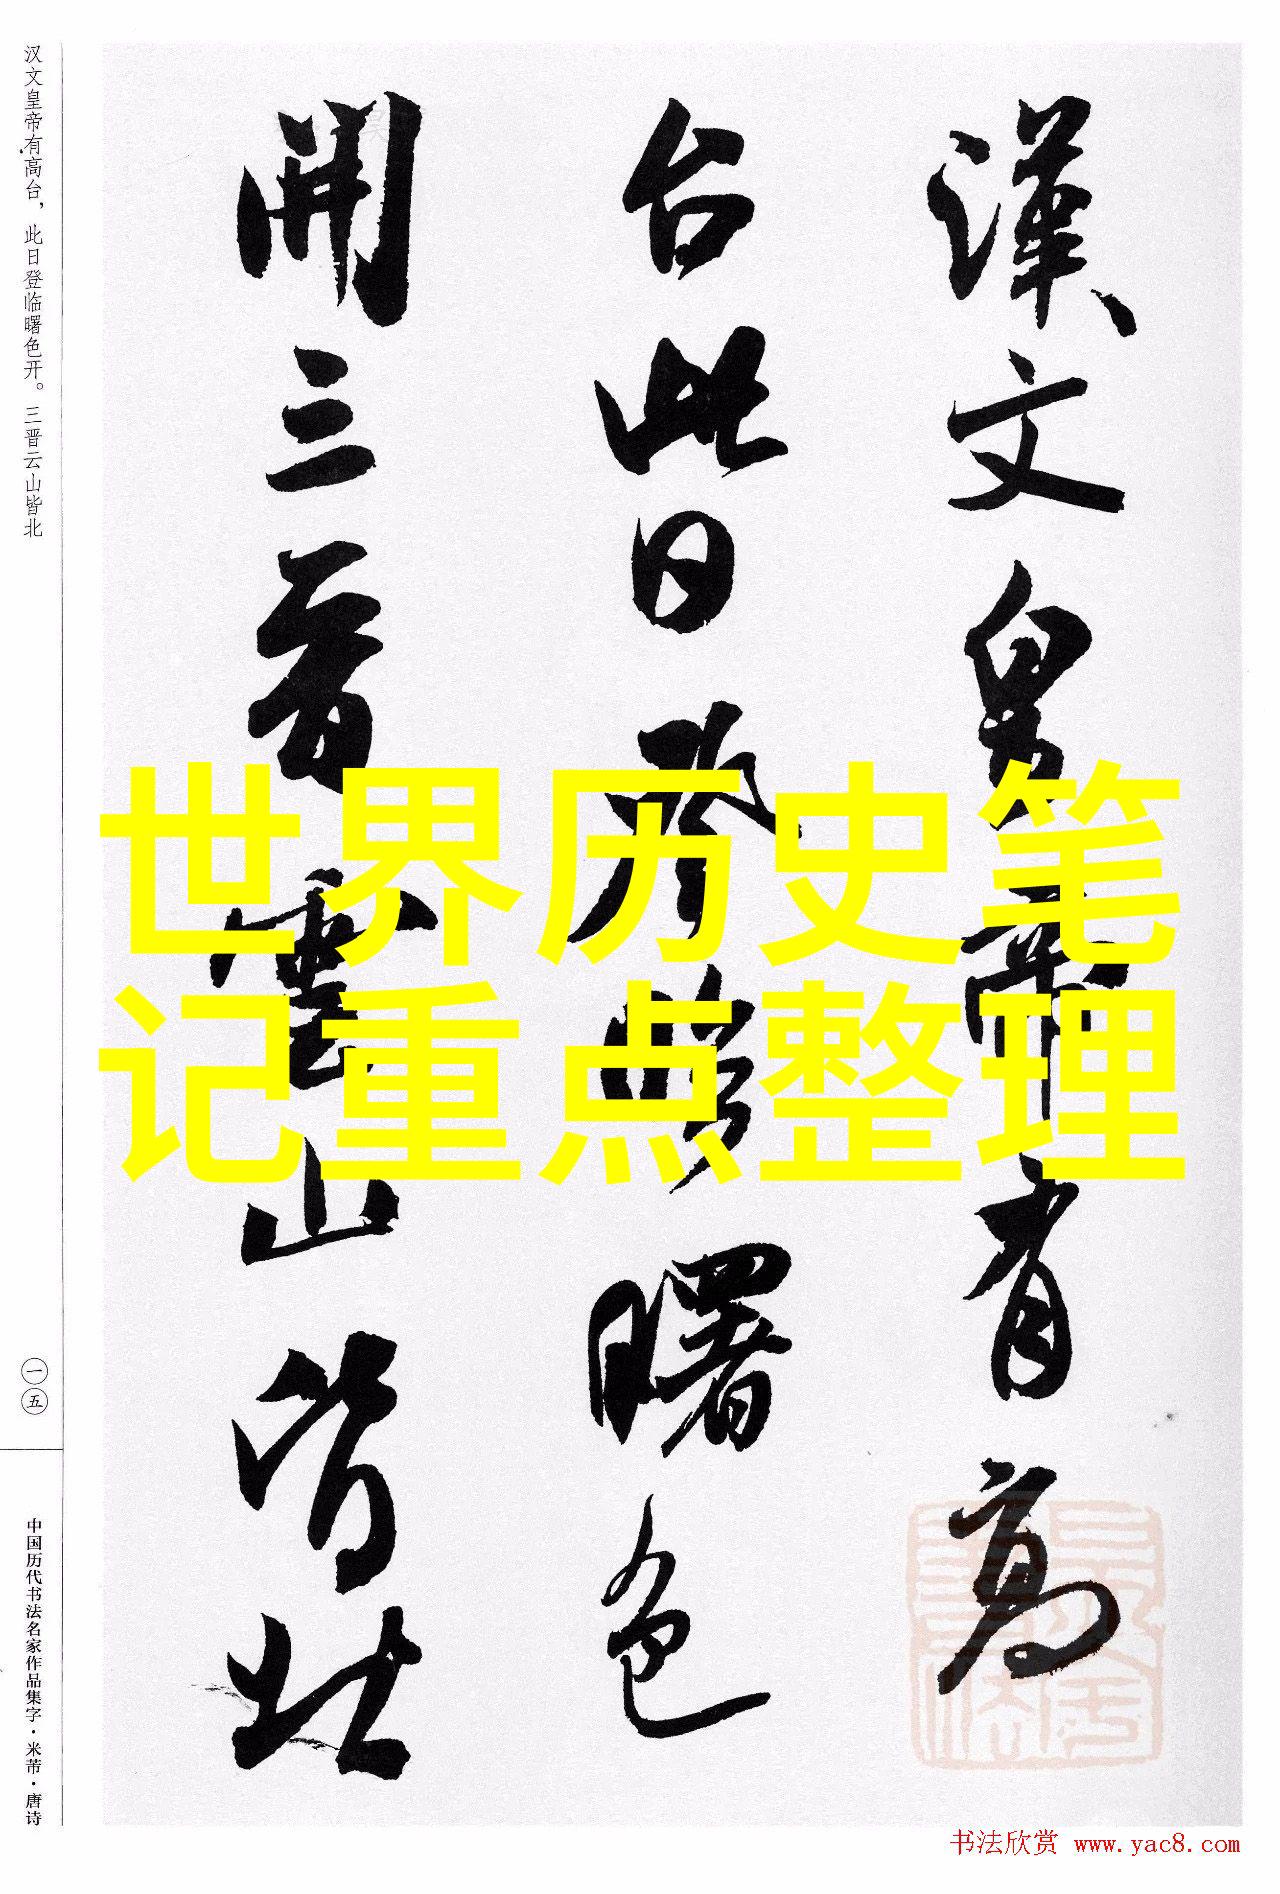 漢文皇帝有高
台此日登臨曙色
開三晉雲山皆北
世界历史笔
记重点整理
汉文皇帝有高台，此日登临曙色开。三晋云山皆北
一五
中国历代书法名家作品集字·米芾·唐诗
书法欣赏 www.yac8.com